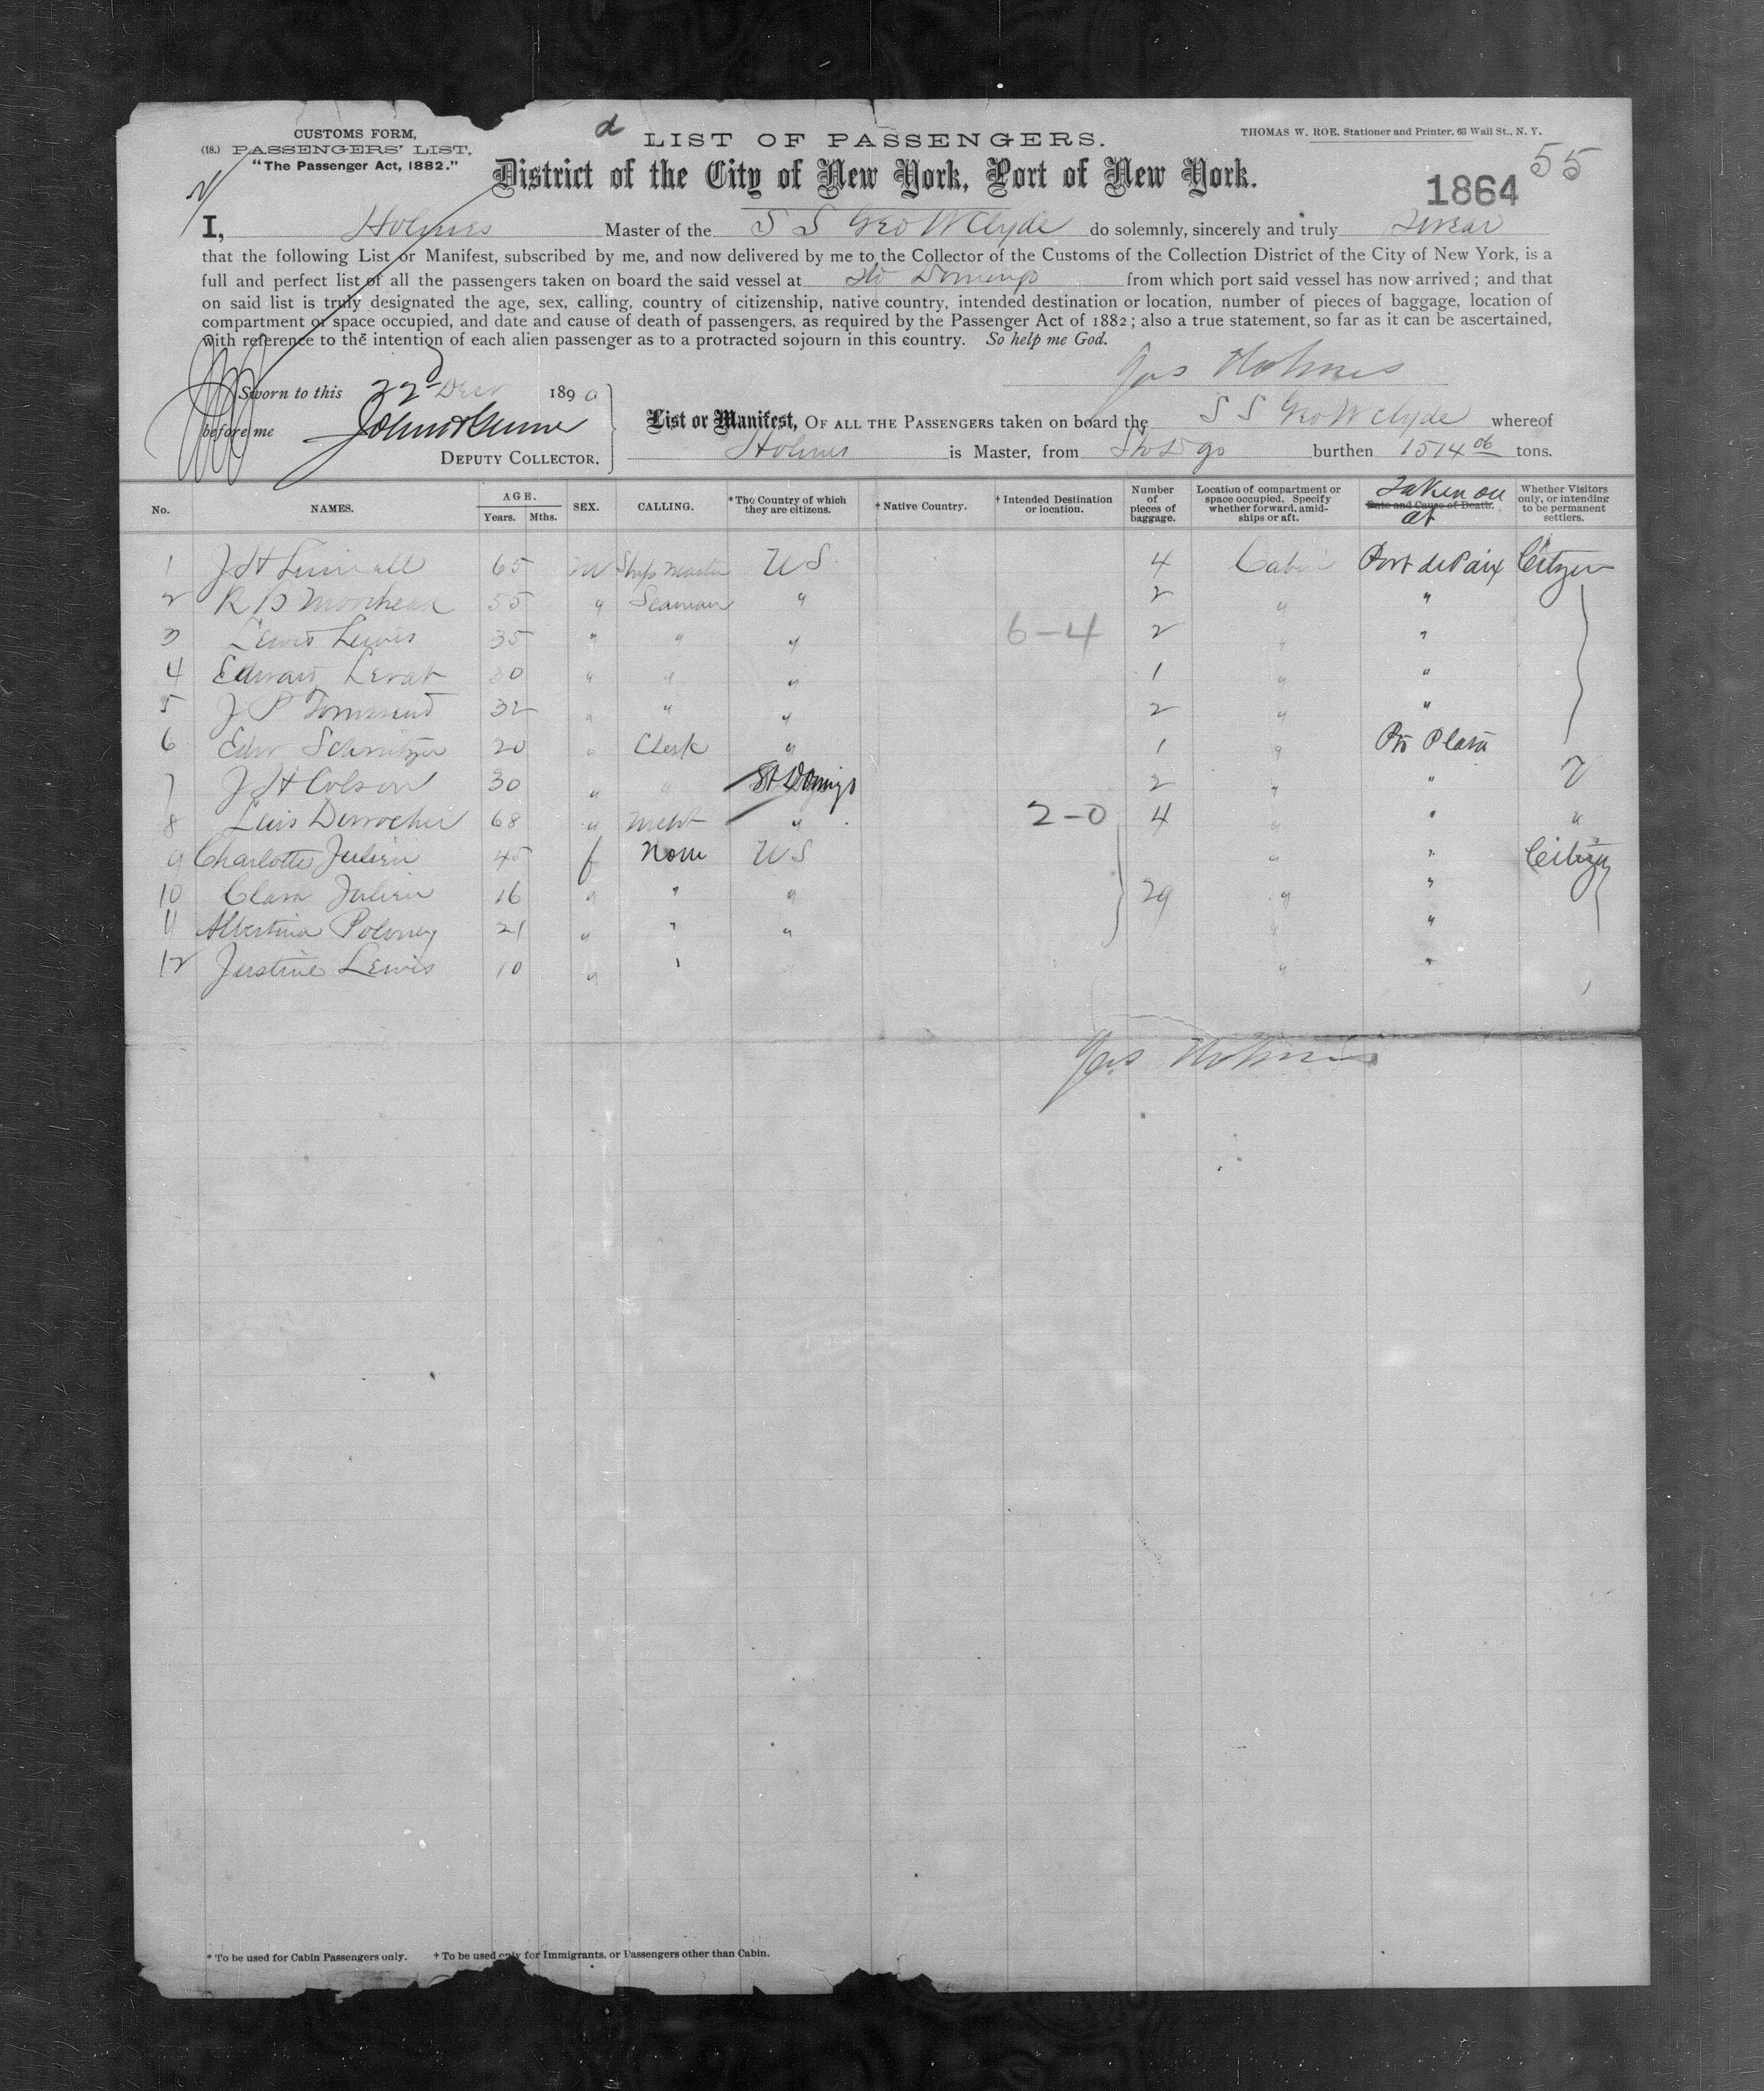 CUSTOMS FORM,
(18.) PASSENGERS' LIST,
"The Passenger Act, 1882."
LIST OF PASSENGERS.
THOMAS W. ROE. Stationer and Printer, 63 Wall St., N. Y.
District of the City of New York, Port of New York.
1864 55
I, Holmes Master of the S S Geo W Clyde do solemnly, sincerely and truly swear
that the following List or Manifest, subscribed by me, and now delivered by me to the Collector of the Customs of the Collection District of the City of New York, is a
full and perfect list of all the passengers taken on board the said vessel at Sto Domingo from which port said vessel has now arrived; and that
on said list is truly designated the age, sex, calling, country of citizenship, native country, intended destination or location, number of pieces of baggage, location of
compartment or space occupied, and date and cause of death of passengers, as required by the Passenger Act of 1882; also a true statement, so far as it can be ascertained,
with reference to the intention of each alien passenger as to a protracted sojourn in this country. So help me God.
Jas Holmes
Sworn to this 22d Decr 1890
before me
DEPUTY COLLECTOR.
List or Manifest, OF ALL THE PASSENGERS taken on board the S S Geo W Clyde whereof
Holmes is Master, from Sto Dgo burthen 1514 06 tons.
No. NAMES. AGE. Years. Mths. SEX. CALLING. * The Country of which they are citizens. † Native Country. † Intended Destination or location. Number of pieces of baggage. Location of compartment or space occupied. Specify whether forward, amidships or aft. Date and Cause of Death. Taken on at Whether Visitors only, or intending to be permanent settlers.
1 J H 65 M Ship Master U S 4 Cabin Port de Paix Citizen
2 R B Moorhead 55 " Seaman " 2 " "
3 Lewis Lewis 35 " " " 6-4 2 " "
4 Edward Levat 30 " " " 1 " "
5 J P Townsend 32 " " " 2 " "
6 Edw Schnitzer 20 " Clerk " 1 " Pto Plata
7 J H Colson 30 " " St Domingo 2 " " V
8 Luis Derrocher 68 " Mcht " 2-0 4 " " "
9 Charlotte Julien 45 f None U S " " Citizen
10 Clara Julien 16 " " " 29 " "
11 Albertina Poloney 21 " " " " "
12 Justine Lewis 10 " " " "
Jas Holmes
* To be used for Cabin Passengers only. † To be used only for Immigrants, or Passengers other than Cabin.